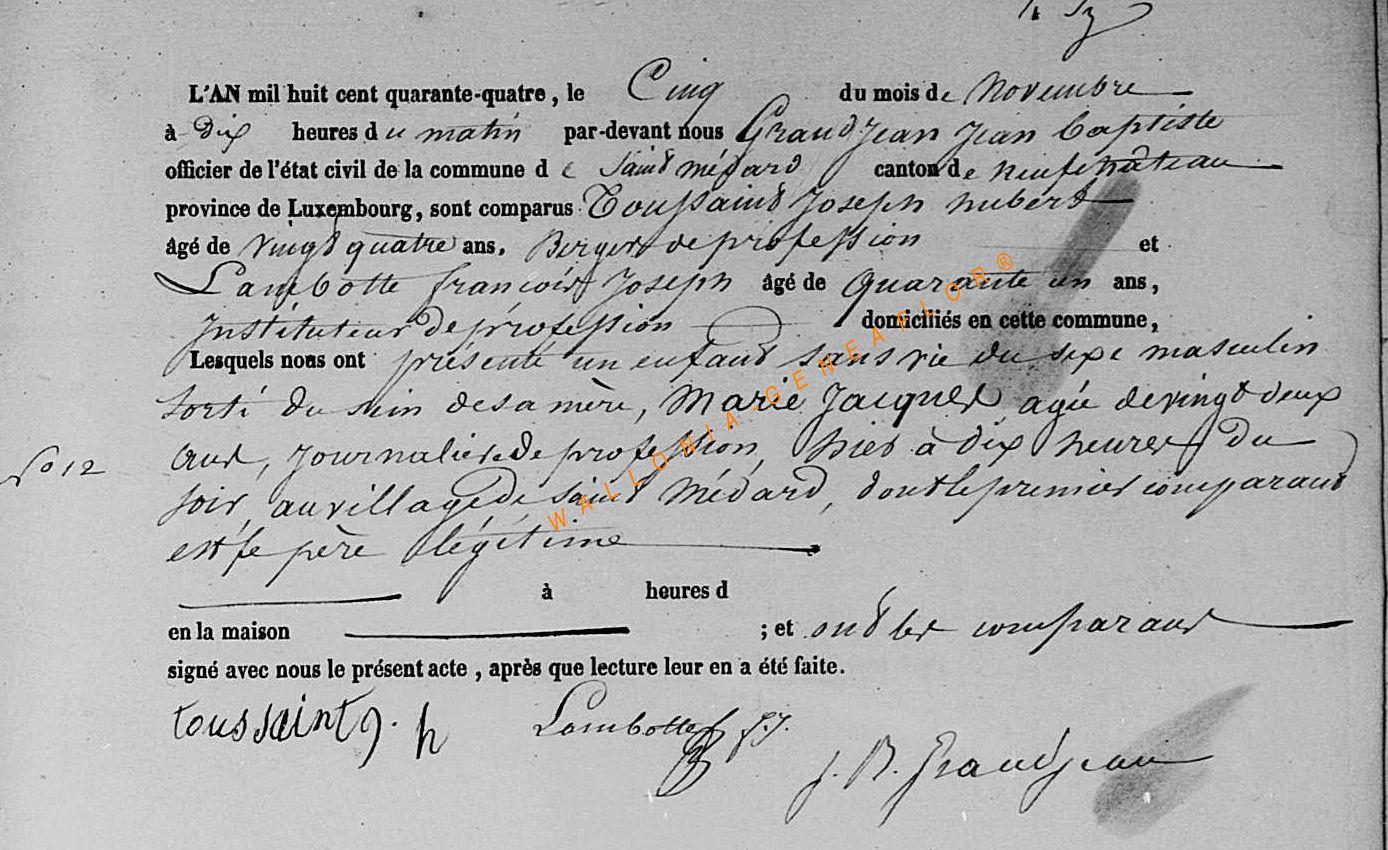 L'AN mil huit cent quarante-quatre, le Cinq du mois de Novembre
à Dix heures du matin par-devant nous Grandjean Jean Baptiste
officier de l'état civil de la commune de Saint Médard canton de neufchâteau
province de Luxembourg, sont comparus Toussaint Joseph hubert
âgé de vingt quatre ans, Berger de profession et
Lambotte françois Joseph âgé de quarante un ans,
Instituteur de profession domiciliés en cette commune,
Lesquels nous ont présenté un enfant sans vie du sexe masculin
sorti du sein de sa mère, Marie Jacques, agée de vingt deux
No 12
ans, journalière de profession, hier à dix heures du
soir, au village de Saint Médard, dont le premier comparant
est le père légitime
à heures d
en la maison ; et ont les comparans
signé avec nous le présent acte, après que lecture leur en a été faite.
toussaint j. h Lambotte f. J.
J. B. Grandjean
WALLONIA-GENEAFLOR®